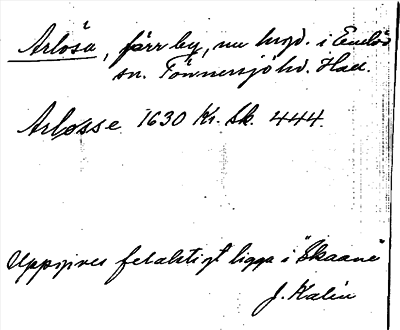 Arlösa, förr by, nu hmd. i Enslöv
sn. Tönnersjö hd. Hall.
Arløsse 1630 Kr. Sk. 444.
Uppgives felaktigt ligga i "Skaane"
J. Kalén